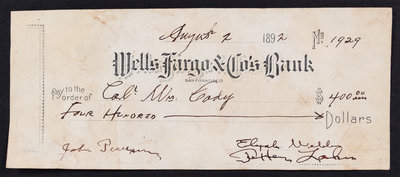 August 2 1892 No. 1929
Wells Fargo & Co's Bank
SAN FRANCISCO
Pay to the order of Col. Wm. Cody $ 400.00
Four Hundred Dollars
John